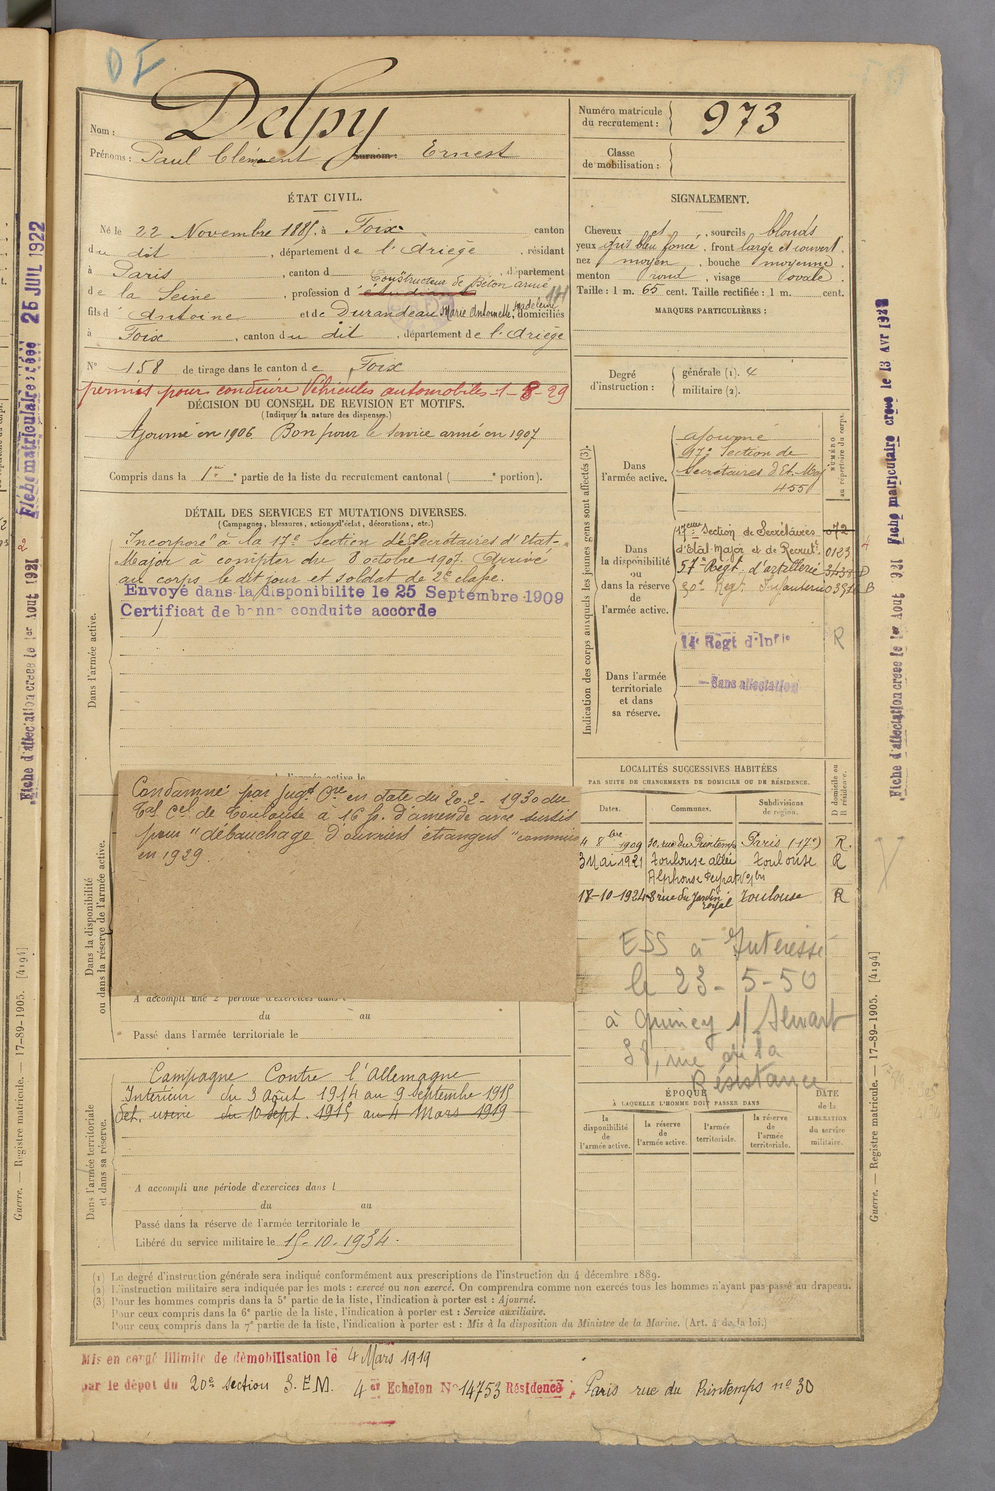 DI
Nom : Delpy
Prénoms : Paul Clément Surnom : Ernest
Numéro matricule
du recrutement : 973
Classe
de mobilisation :
ÉTAT CIVIL.
Né le 22 Novembre 1885, à Foix canton
du dit, département de l'Ariège, résidant
à Paris, canton d , département
de la Seine, profession d étudiant Constructeur de Béton armé
fils d' Antoine et de Durandeau Marie Antoinette Madeleine, domiciliés
à Foix, canton du dit, département de l'Ariège
N° 158 de tirage dans le canton de Foix
permis pour conduire Véhicules automobiles 1-8-29
DÉCISION DU CONSEIL DE REVISION ET MOTIFS.
(Indiquer la nature des dispenses.)
Ajourné en 1906. Bon pour le service armé en 1907
Compris dans la 1re partie de la liste du recrutement cantonal ( e portion).
SIGNALEMENT.
Cheveux et , sourcils blonds
yeux gris bleu foncé, front large et couvert
nez moyen, bouche moyenne
menton rond, visage ovale
Taille : 1 m. 65 cent. Taille rectifiée : 1 m. cent.
MARQUES PARTICULIÈRES :
Degré
d'instruction :
générale (1). 4
militaire (2).
DÉTAIL DES SERVICES ET MUTATIONS DIVERSES.
(Campagnes, blessures, actions d'éclat, décorations, etc.)
Dans l'armée active.
Incorporé à la 17e Section de Secrétaires d'Etat-
Major à compter du 8 octobre 1907. Arrivé
au corps le dit jour et soldat de 2e classe.
Envoyé dans la disponibilité le 25 Septembre 1909
Certificat de bonne conduite accordé
Indication des corps auxquels les jeunes gens sont affectés (3).
NUMÉRO
au répertoire du corps.
Dans
l'armée active.
ajourné
17e Section de
Secrétaires d'Et. Maj
455
Dans
la disponibilité
ou
dans la réserve
de
l'armée active.
17eme Section de Secrétaires 072
d'État Major et de Recrutt. 0123
57e Régt d'artillerie 3434 D
30e Régt Infanterie B
Dans l'armée
territoriale
et dans
sa réserve.
14e Régt d'Infie R
Sans affectation
Dans la disponibilité
ou dans la réserve de l'armée active.
Condamné par Jugt Cre en date du 20.2.1930 du
Tal Cel de Toulouse à 16 f. d'amende avec sursis
pour "débauchage d'ouvriers étrangers" commis
en 1929
A accompli une 2e période d'exercices dans l
du au
Passé dans l'armée territoriale le
LOCALITÉS SUCCESSIVES HABITÉES
PAR SUITE DE CHANGEMENTS DE DOMICILE OU DE RÉSIDENCE.
D domicile ou
R résidence.
Dates. Communes. Subdivisions de région.
8bre 1909 30, rue du Printemps Paris (17e) R.
3 Mai 1921 Toulouse allée Toulouse R
Alphonse Peyrat
18-10-1924 8 rue du Jardin royal Toulouse R
ESS à Intéressé
le 23-5-50
à Quincy s/ Senart
rue de la
Résistance
Dans l'armée territoriale
et dans sa réserve.
Campagne Contre l'Allemagne
Intérieur du 3 Août 1914 au 9 septembre 1915
Det. usine du 10 sept 1915 au 4 Mars 1919
A accompli une période d'exercices dans l
du au
Passé dans la réserve de l'armée territoriale le
Libéré du service militaire le 15-10-1934.
ÉPOQUE
À LAQUELLE L'HOMME DOIT PASSER DANS
la disponibilité de l'armée active.
la réserve de l'armée active.
l'armée territoriale.
la réserve de l'armée territoriale.
DATE de la LIBÉRATION du service militaire.
(1) Le degré d'instruction générale sera indiqué conformément aux prescriptions de l'instruction du 4 décembre 1889.
(2) L'instruction militaire sera indiquée par les mots : exercé ou non exercé. On comprendra comme non exercés tous les hommes n'ayant pas passé au drapeau.
(3) Pour les hommes compris dans la 5e partie de la liste, l'indication à porter est : Ajourné.
Pour ceux compris dans la 6e partie de la liste, l'indication à porter est : Service auxiliaire.
Pour ceux compris dans la 7e partie de la liste, l'indication à porter est : Mis à la disposition du Ministre de la Marine. (Art. 4 de la loi.)
Mis en congé illimité de démobilisation le 4 Mars 1919
par le dépot du 20e section S.E.M. 4e Echelon N° 14753 Résidence, Paris rue du Printemps n° 30
Guerre. — Registre matricule. — 17-89-1905. [4194]
Guerre. — Registre matricule. — 17-89-1905. [4194]
Fiche d'affectation créée le 1er Août 1921 Fiche matriculaire créée 25 JUIL 1922
Fiche d'affectation créée le 1er Août 921 Fiche matriculaire créée le 13 Avr 1923